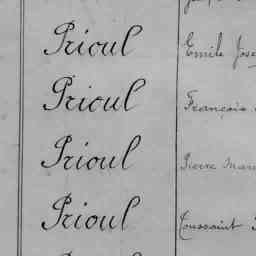 Prioul Emile
Prioul François
Prioul Pierre
Prioul Toussaint